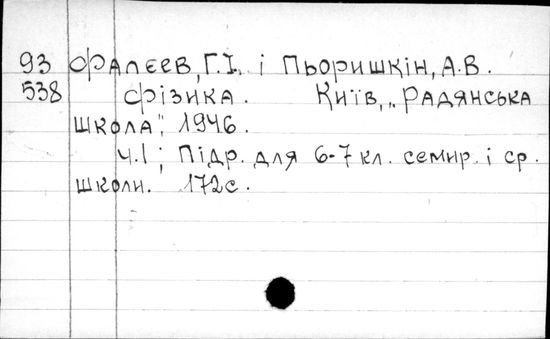 93 Фалєев, Г.І. і Пьоришкін, А.В.
538 Фізика. Київ, „Радянська
школа", 1946.
ч.1; Підр. для 6-7 кл. семир. і ср.
школи. 172с.